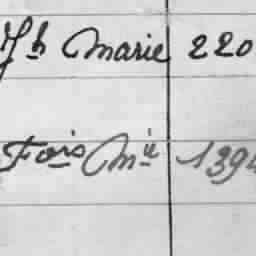 Jh Marie 220
Fois Mie 1394